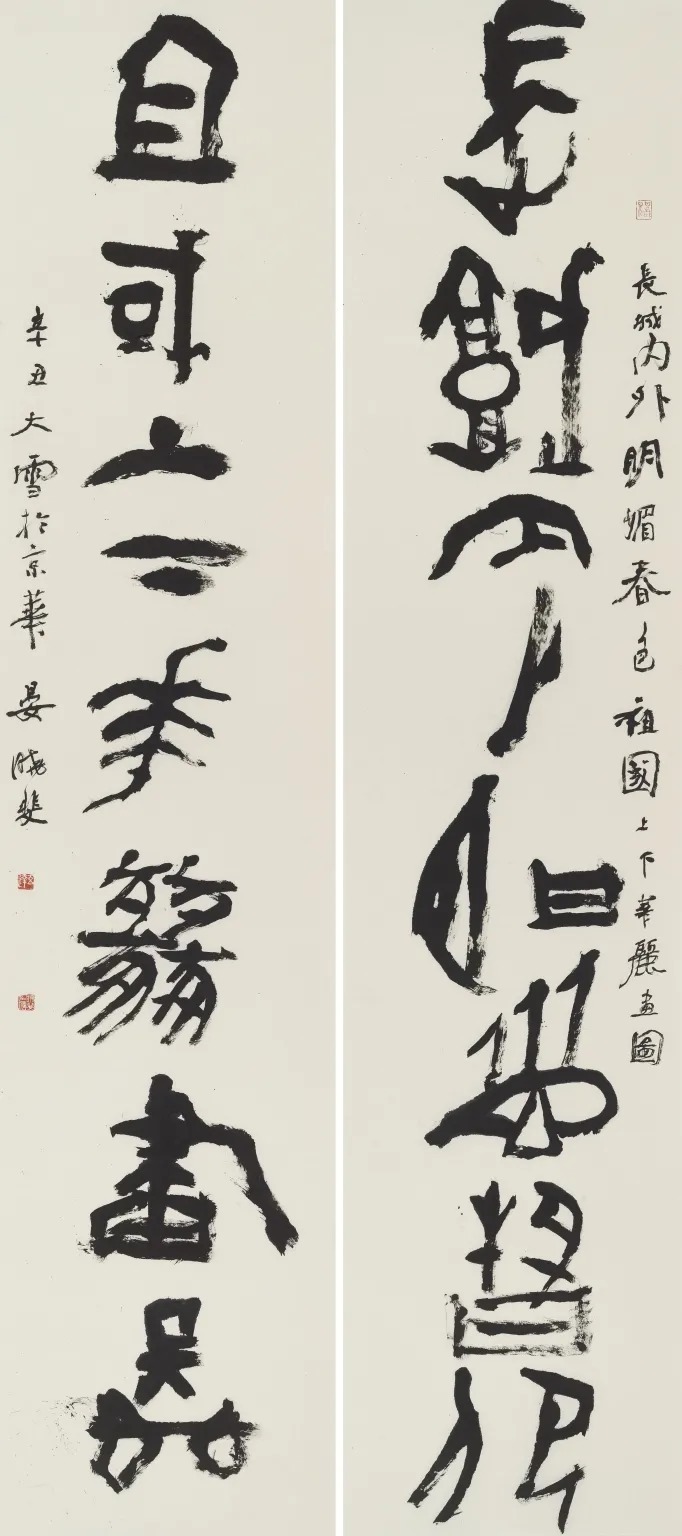 長城内外明媚春色祖國上下華麗畫圖
長城内外明媚春色
祖國上下華麗畫圖
辛丑大雪於京華 晏曉斐